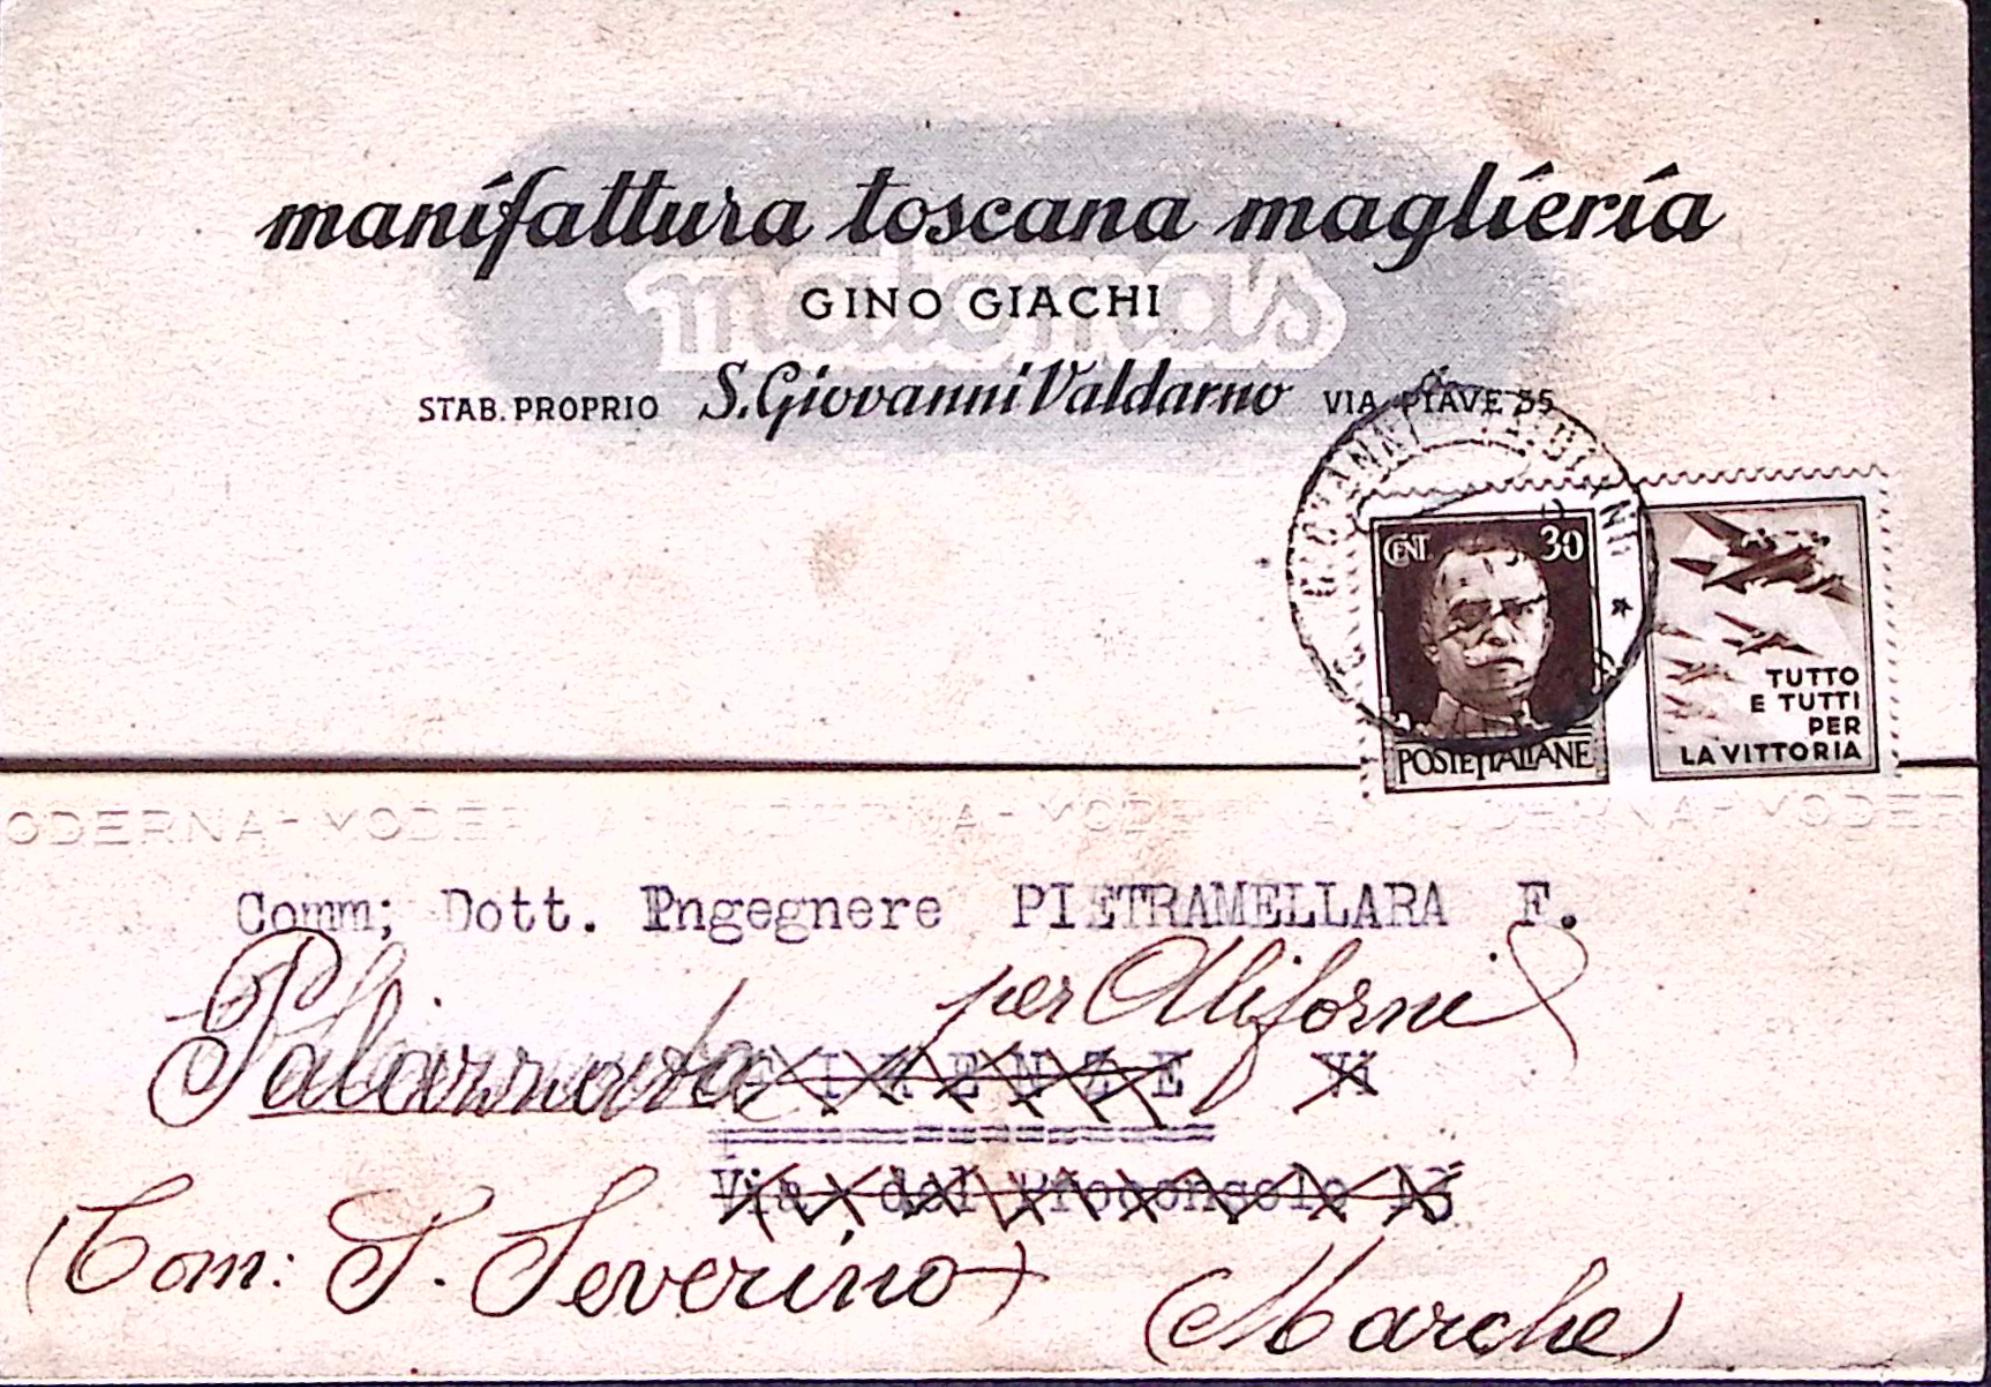 manifattura toscana maglieria
matomas
GINO GIACHI
STAB. PROPRIO S. Giovanni Valdarno VIA PIAVE 35
CENT. 30
POSTE ITALIANE
TUTTO
E TUTTI
PER
LA VITTORIA
ODERNA-MODERNA-MODERNA-MODERNA-MODER
Comm; Dott. Ingegnere PIETRAMELLARA F.
per Aliforni
FIRENZE
Via del Proconsolo
(Com: S. Severino)
(Marche)